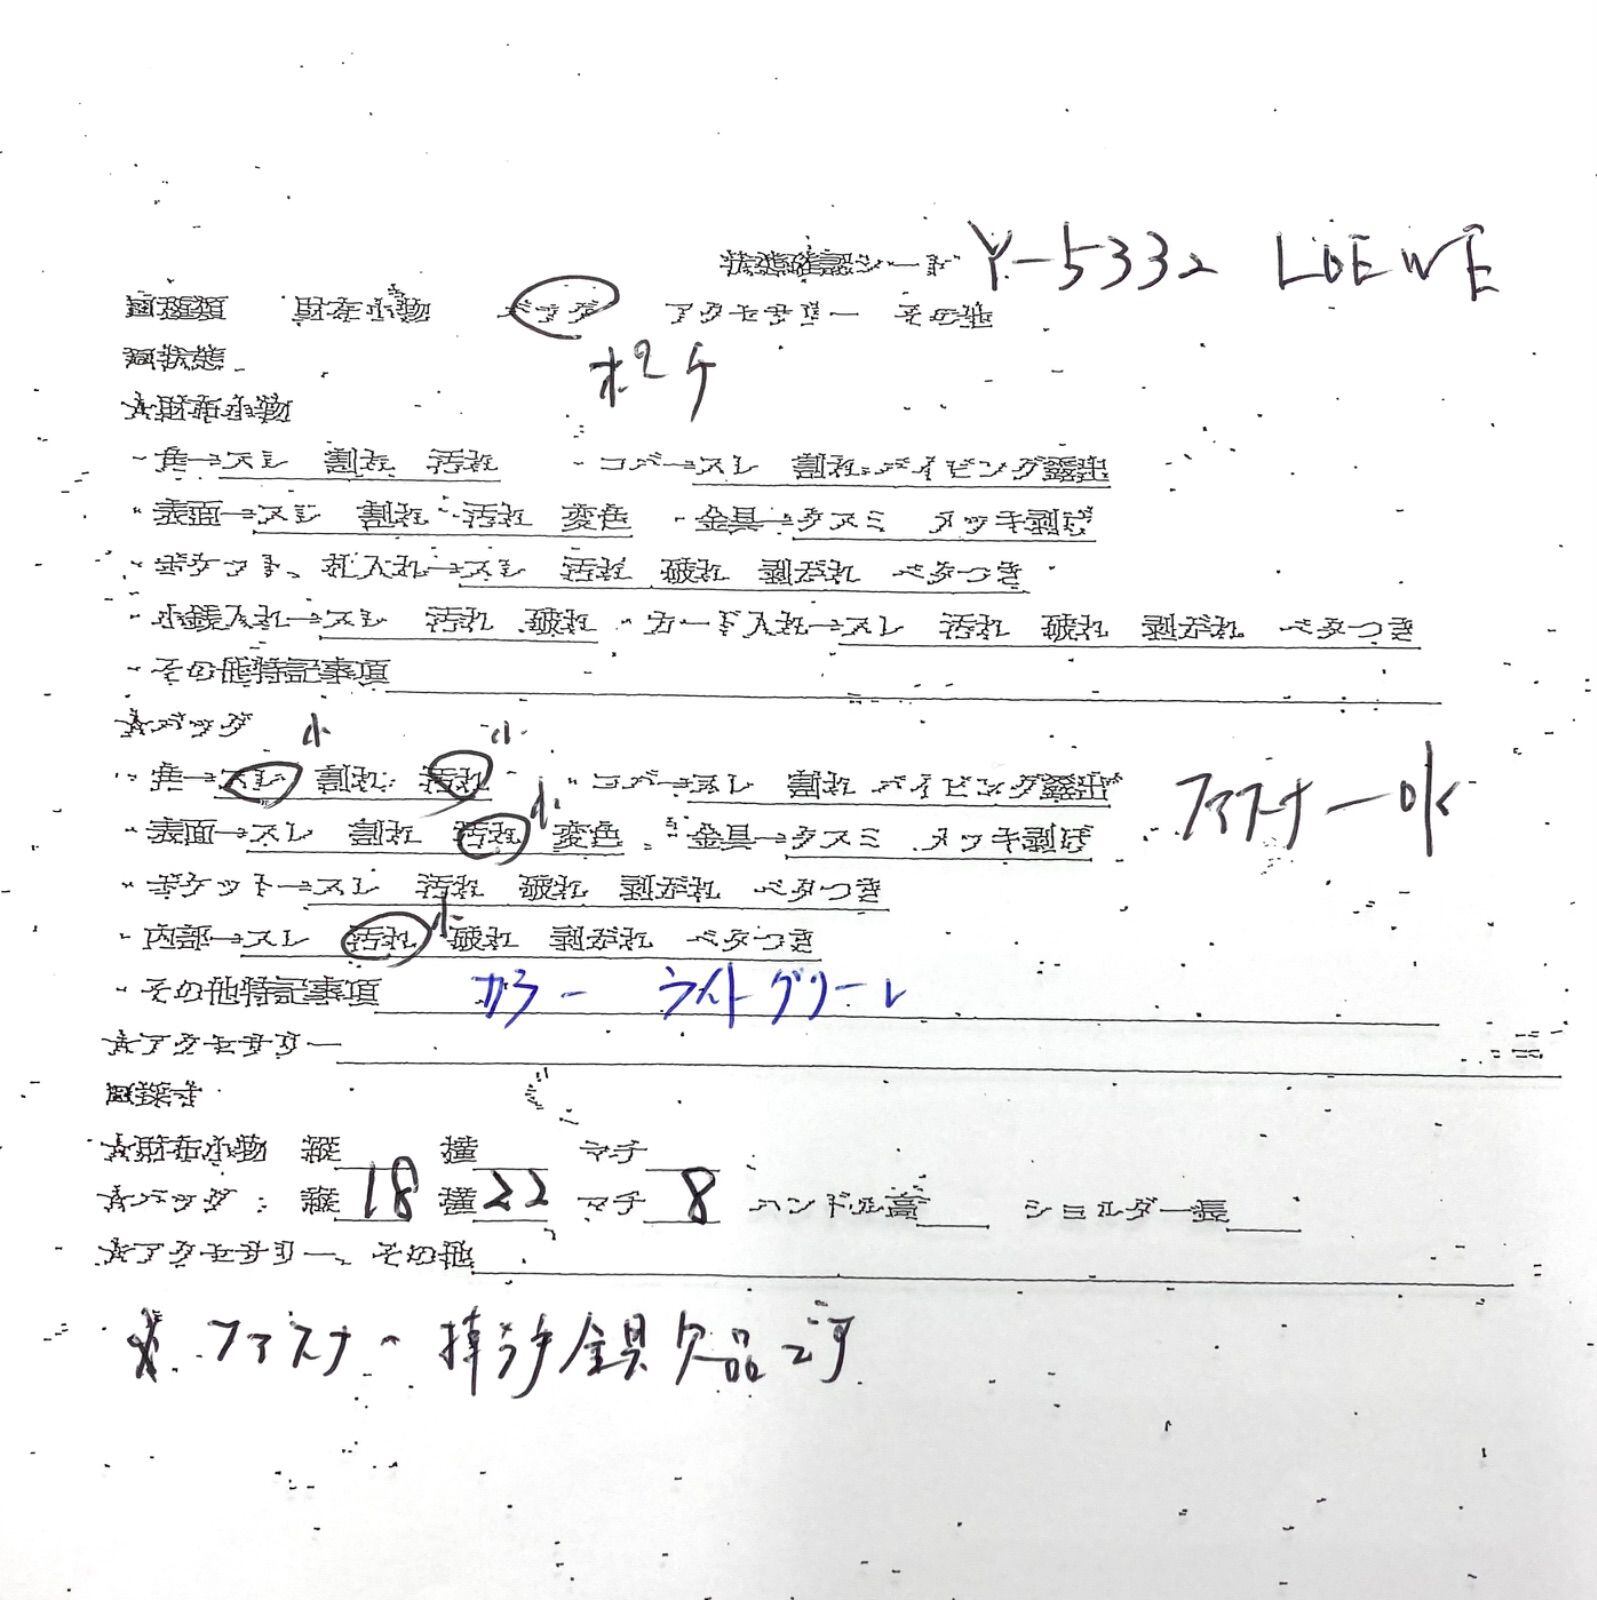 状態確認シート Y-5332 LOEWE
■種類 財布小物 バッグ アクセサリー その他
■状態 ポーチ
★財布小物
・角→スレ 割れ 汚れ ・コバ→スレ 割れ パイピング露出
・表面→スレ 割れ 汚れ 変色 ・金具→クスミ メッキ剥げ
・ポケット、札入れ→スレ 汚れ 破れ 剥がれ ベタつき
・小銭入れ→スレ 汚れ 破れ ・カード入れ→スレ 汚れ 破れ 剥がれ ベタつき
・その他特記事項
★バッグ 小 小
・角→スレ 割れ 汚れ ・コバ→スレ 割れ パイピング露出 ファスナーOK
・表面→スレ 割れ 汚れ 小 変色 ・金具→クスミ メッキ剥げ
・ポケット→スレ 汚れ 破れ 剥がれ ベタつき
・内部→スレ 汚れ 小 破れ 剥がれ ベタつき
・その他特記事項 カラー ライトグリーン
★アクセサリー
■採寸
★財布小物 縦 横 マチ
★バッグ：縦18 横22 マチ8 ハンドル高 ショルダー長
★アクセサリー、その他
※ファスナー 金具欠品